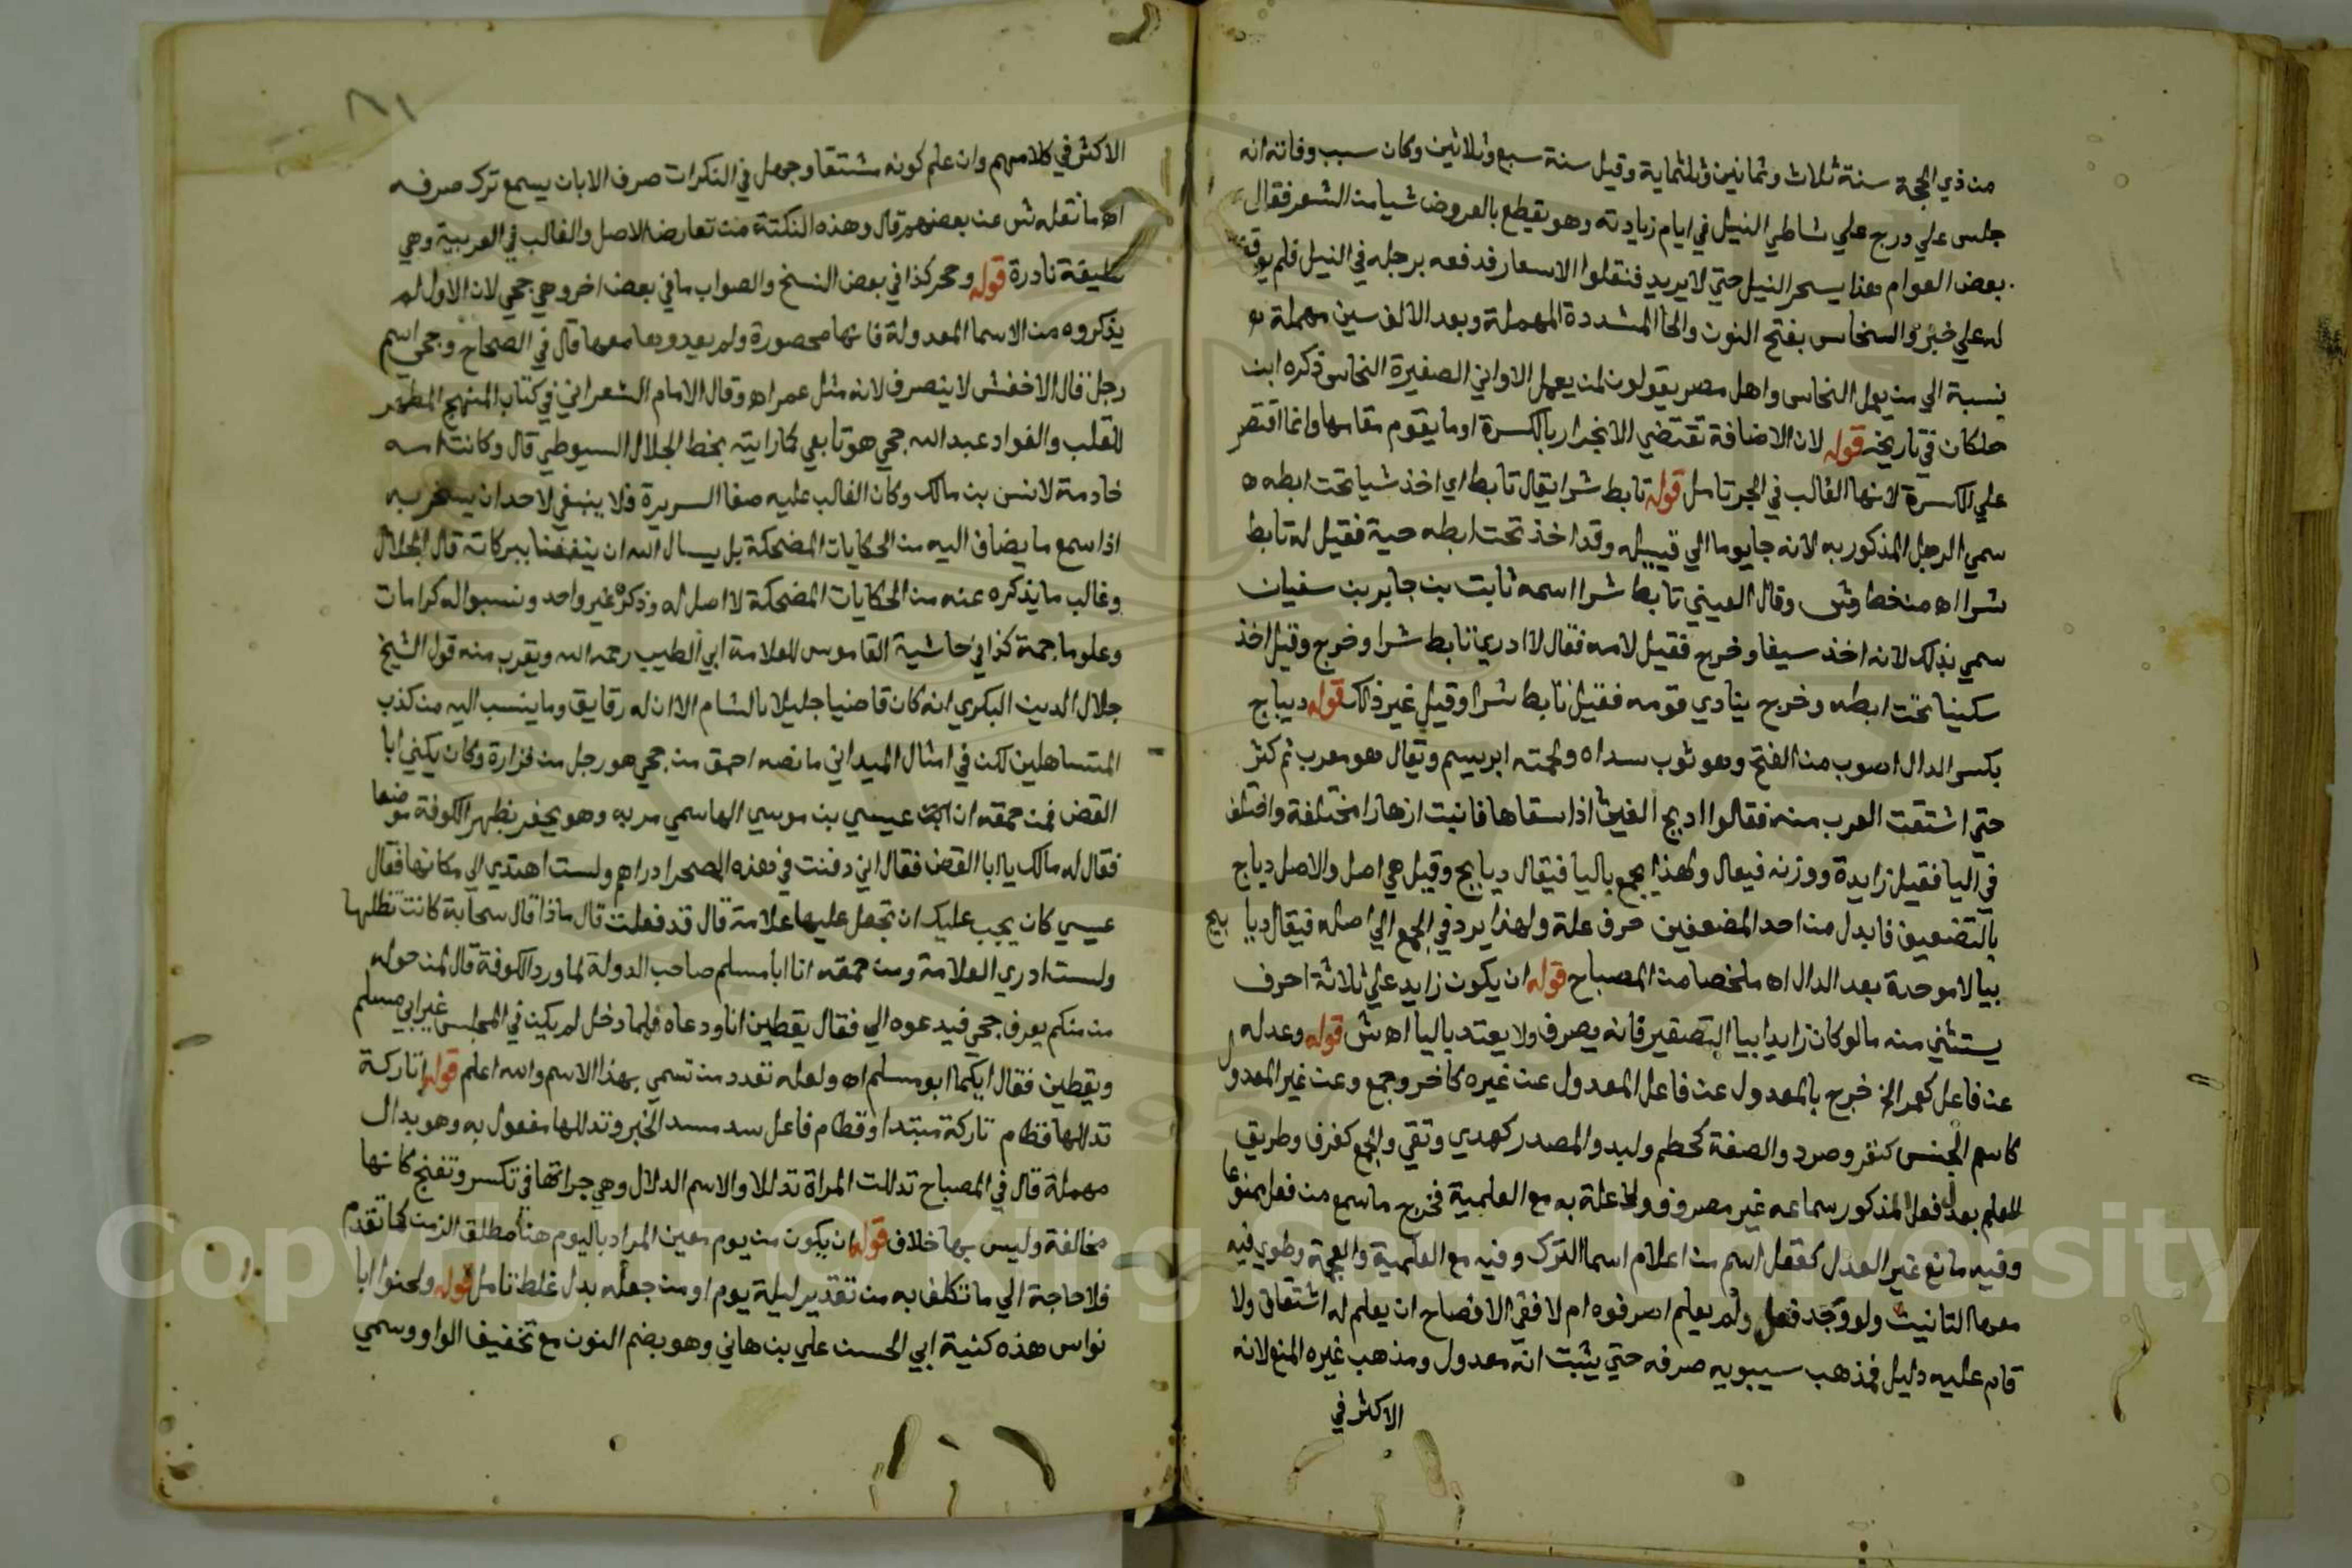 من ذي الحجة سنة ثلاث وثمانين وثلثماية وقيل سنة سبع وثلاثين وكان سبب وفاته انه
جلس علي درج علي شاطي النيل في ايام زيادته وهو يقطع بالعروض شيا من الشعر فقال
بعض العوام هذا يسحر النيل حتي لا يريد فنقلوا الاسعار فدفعه برجله في النيل فلم يوقف
له علي خبر والنحاس بفتح النون والحا المشددة المهملة وبعد الالف سين مهملة
نسبة الي من يعمل النحاس واهل مصر يقولون لمن يعمل الاواني الصفيرة النحاس ذكره ابن
خلكان في تاريخه قوله لان الاضافة تقتضي الانجرار بالكسرة او ما يقوم مقامها وانما اقتصر
علي الكسرة لانها الغالب في الجر تامل قوله تابط شرا يقال تابط اي اخذ شيا تحت ابطه
سمي الرجل المذكور به لانه جا يوما الي قبيله وقد اخذ تحت ابطه حية فقيل له تابط
شرا اه من خط وش وقال العيني تابط شرا اسمه ثابت بن جابر بن سفيان
سمي بذلك لانه اخذ سيفا وخرج فقيل لامه فقال لا ادري تابط شرا وخرج وقيل اخذ
سكينا تحت ابطه وخرج ينادي قومه فقيل تابط شرا وقيل غير ذلك قوله ديباج
بكسر الدال اصوب من الفتح وهو ثوب سداه ولحمته ابريسم ويقال هو معرب ثم كثر
حتي اشتقت العرب منه فقالوا ادبج الغيث اذا سقاها فانبت ازهارا مختلفة واختلف
في اليا فقيل زايدة ووزنه فيعال ولهذا يجمع باليا فيقال ديابيج وقيل هي اصل والاصل دباج
بالتضعيف فابدل من احد المضعفين حرف علة ولهذا يرد في الجمع الي اصله فيقال دبابيج
بيا لا موحدة بعد الدال اه ملخصا من المصباح قوله ان يكون زايد علي ثلاثة احرف
يستثني منه ما لو كان زايدا بيا التصغير فانه يصرف ولا يعتد باليا اه ش قوله وعدله
عن فاعل كعمر الخ خرج بالمعدول عن فاعل المعدول عن غيره كاخر وجمع وعن غير المعدول
كاسم الجنس كنغر وصرد والصفة كحطم ولبد والمصدر كهدي وتقي والجمع كغرف وطريق
للعلم بعدل فعل المذكور سماعه غير مصروف ولا علة به مع العلمية فخرج ما سمع من فعل ممنوعا
وفيه مانع غير العدل كفعل اسم من اعلام اسما الترك وفيه مع العلمية والعجمة وطوي فيه
معها التانيث ولو وجد فعل ولم يعلم اصرفوه ام لا ففي الافصاح ان يعلم له اشتقاق ولا
قام عليه دليل فمذهب سيبويه صرفه حتي يثبت انه معدول ومذهب غيره المنع لانه
الاكثر في
٨١
الاكثر في كلامهم وان علم كونه مشتقا وجهل في النكرات صرف الا بان يسمع ترك صرفه
اه ما نقله ش عن بعضهم قال وهذه النكتة من تعارض الاصل والغالب في العربية وهي
نادرة قوله وجحر كذا في بعض النسخ والصواب ما في بعض اخر وهي جحي لان الاول لم
يذكروه من الاسما المعدولة فانها محصورة ولم يعدوها معها قال في الصحاح وجحي اسم
رجل قال الاخفش لا ينصرف لانه مثل عمر اه وقال الامام الشعراني في كتاب المنهج المطهر
للقلب والفواد عبد الله جحي هو تابعي كما رايته بخط الجلال السيوطي قال وكانت امه
خادمة لانس بن مالك وكان الغالب عليه صفا السريرة فلا ينبغي لاحد ان يسخر به
اذا سمع ما يضاف اليه من الحكايات المضحكة بل يسال الله ان ينفعنا ببركاته قال الجلال
وغالب ما يذكره عنه من الحكايات المضحكة لا اصل له وذكره غير واحد ونسبوا له كرامات
وعلوما جمة كذا في حاشية القاموس للعلامة ابي الطيب رحمه الله ويقرب منه قول الشيخ
جلال الدين البكري انه كان قاضيا جليلا بالشام الا ان له رقايق وما ينسب اليه من كذب
المتساهلين لكن في امثال الميداني ما نصه احمق من جحي هو رجل من فزارة وكان يكني ابا
الغصن فمن حمقه ان عيسي بن موسي الهاشمي مر به وهو يحفر بظهر الكوفة موضعا
فقال له مالك يا ابا الغصن فقال اني دفنت في هذه الصحرا دراهم ولست اهتدي الي مكانها فقال
عيسي كان يجب عليك ان تجعل عليها علامة قال قد فعلت قال ماذا قال سحابة كانت تظللها
ولست ادري العلامة ومن حمقه ان ابا مسلم صاحب الدولة لما ورد الكوفة قال لمن حوله
من منكم يعرف جحي فيدعوه الي فقال يقطين انا ودعاه فلما دخل لم يكن في المجلس غير ابي مسلم
ويقطين فقال ايكما ابو مسلم اه ولعله تعدد من تسمي بهذا الاسم والله اعلم قوله اتاركة
تدللها قطام تاركة مبتدا وقطام فاعل سد مسد الخبر وتدللها مفعول به وهو بدال
مهملة قال في المصباح تدللت المراة تدللا والاسم الدلال وهي جراتها في تكسر وتغنج كانها
مخالفة وليس بها خلاف قوله ان يكون من يوم معين المراد باليوم هنا مطلق الزمن كما تقدم
فلا حاجة الي ما تكلف به من تقدير ليلة يوم او من جعله بدل غلط تامل قوله ولحنوا ابا
نواس هذه كنية ابي الحسن علي بن هاني وهو بضم النون مع تخفيف الواو وسمي
Copyright © King Saud University